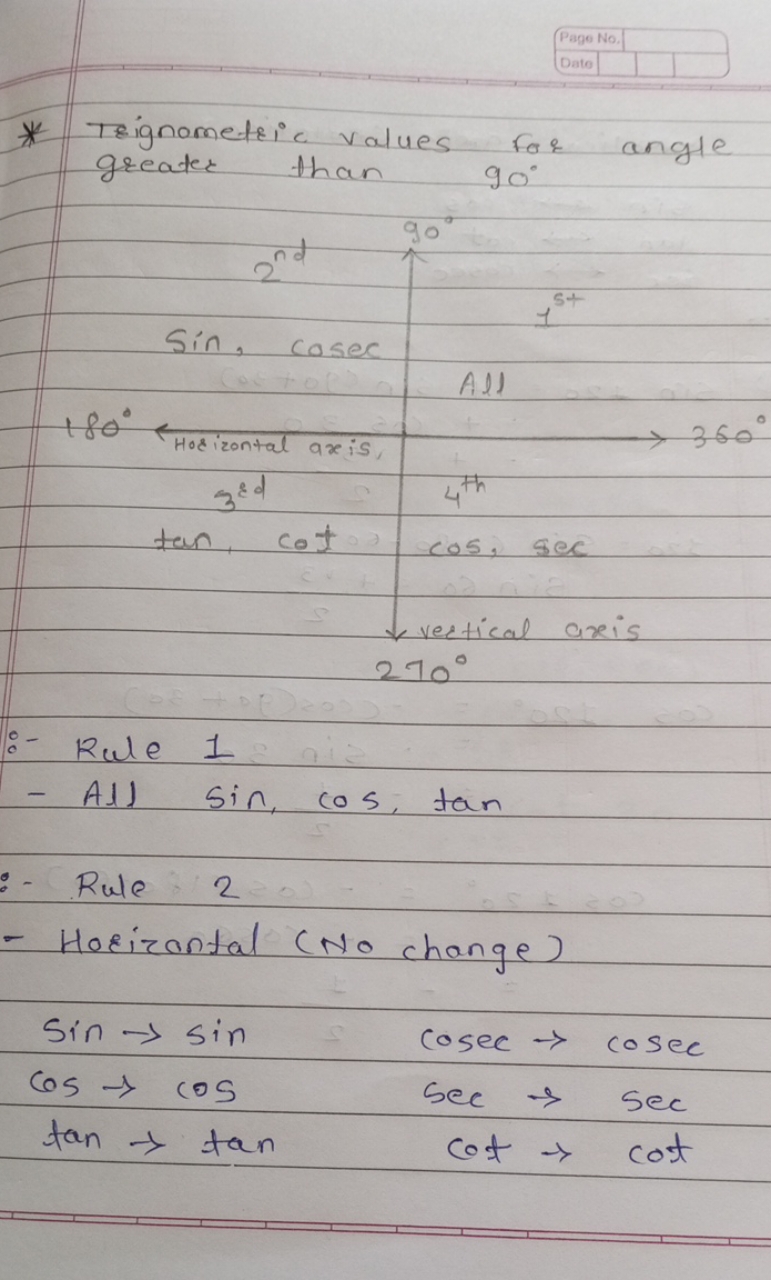 Page No.
Date
* Trignometric values for angle
greater than 90°
90°
2nd
1st
Sin, cosec
All
180°
360°
Horizontal axis,
3rd
4th
tan, cot
cos, sec
vertical axis
270°
:- Rule 1
- All sin, cos, tan
:- Rule 2
- Horizontal (No change)
Sin → sin cosec → cosec
cos → cos sec → sec
tan → tan cot → cot